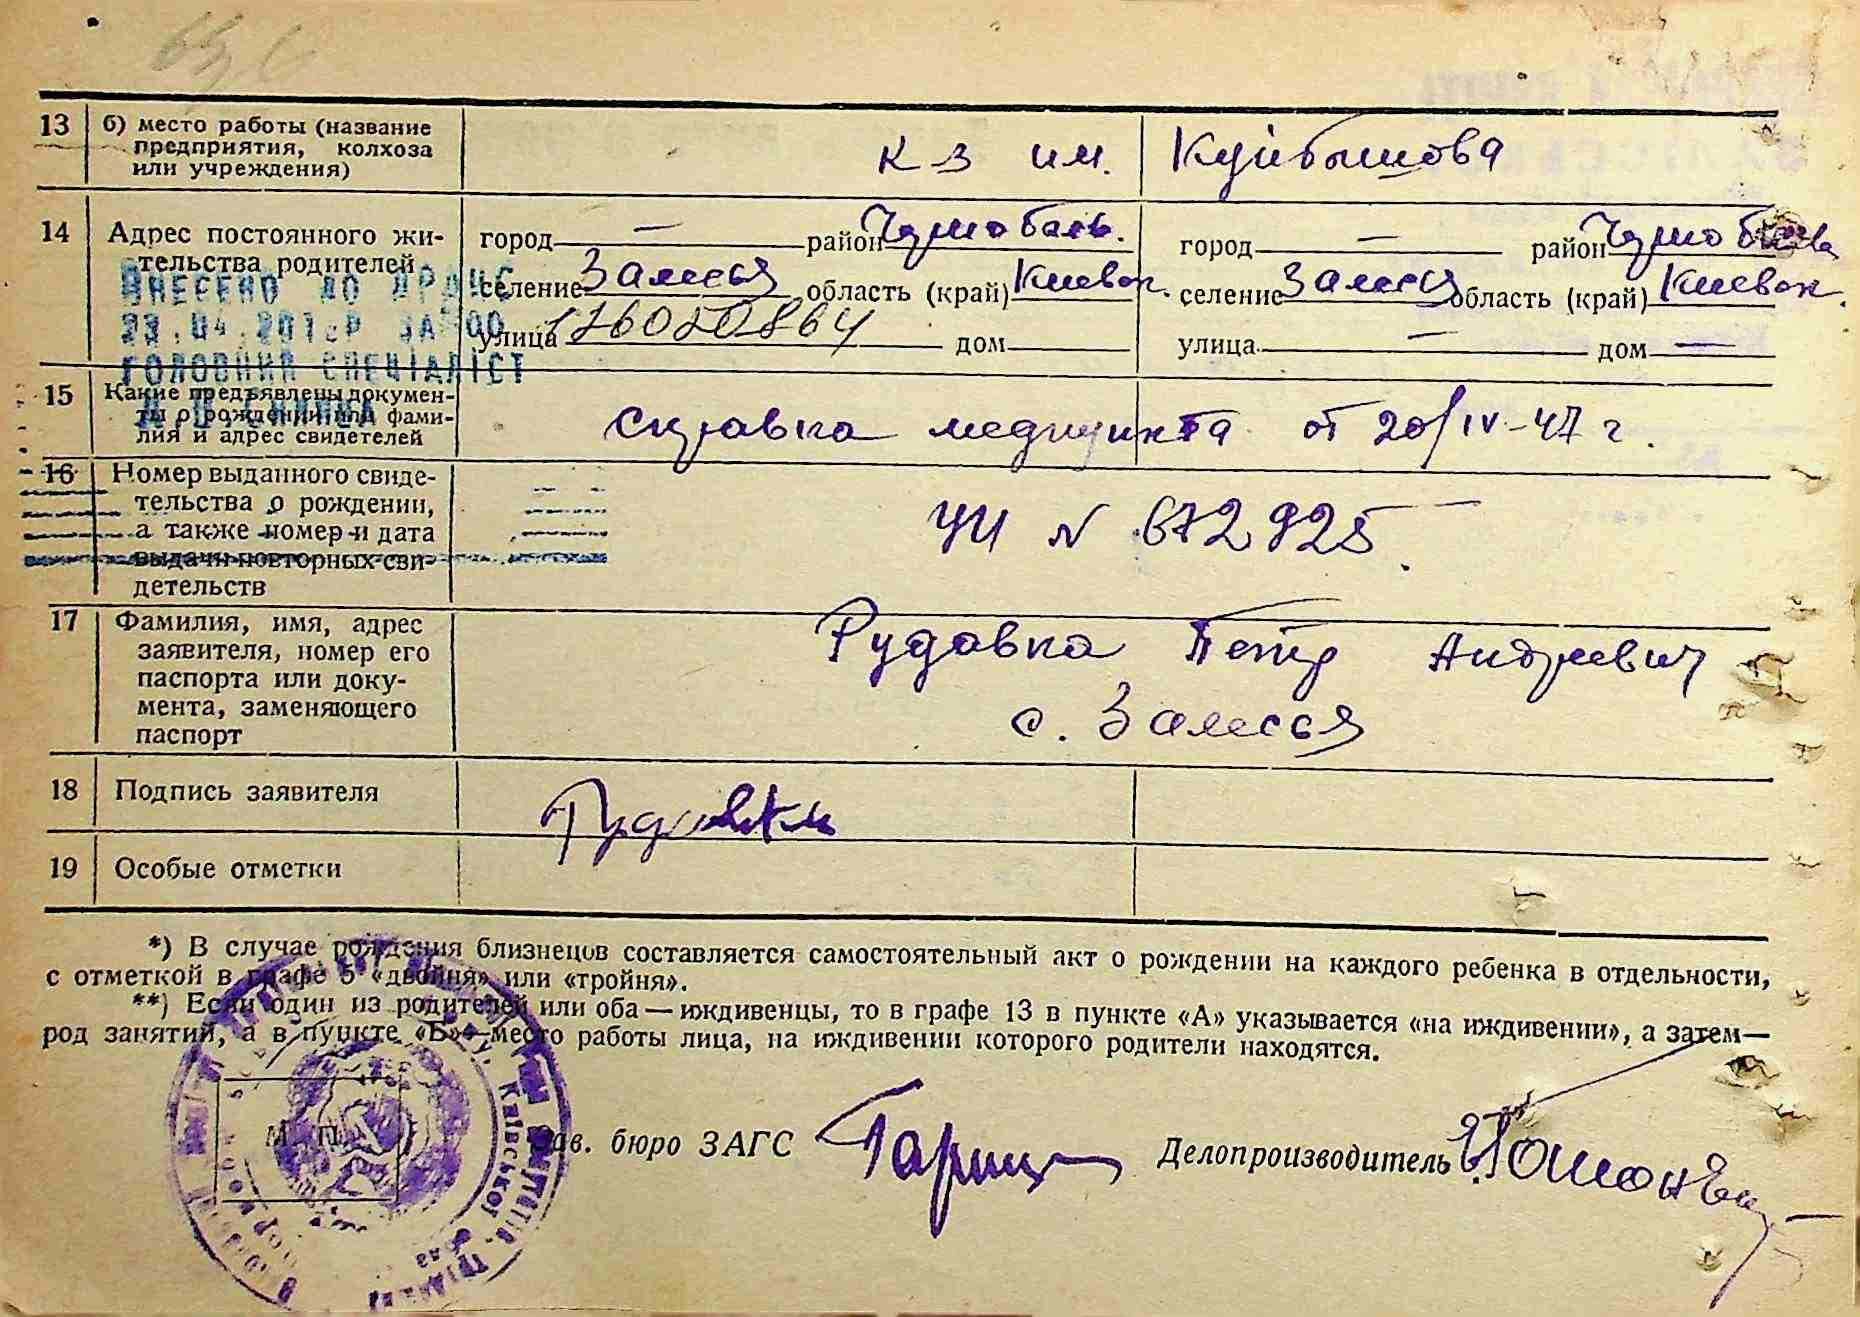 13 б) место работы (название
предприятия, колхоза
или учреждения)
кз им. Куйбышова
14 Адрес постоянного жи-
тельства родителей
город — район Чернобаль.
селение Залесья область (край) Киевск.
улица 176050864 дом
город — район
селение Залесья область (край) Киевск.
улица — дом —
ВНЕСЕНО ДО ДРАЦС
ГОЛОВНИЙ СПЕЦІАЛІСТ
15 Какие предъявлены докумен-
ты о рождении или фами-
лия и адрес свидетелей
Справка медпункта от 20/IV-47 г.
16 Номер выданного свиде-
тельства о рождении,
а также номер и дата
выдачи повторных сви-
детельств
УИ N 672925
17 Фамилия, имя, адрес
заявителя, номер его
паспорта или доку-
мента, заменяющего
паспорт
Рудавка Петр Андреевич
с. Залесья
18 Подпись заявителя
19 Особые отметки
*) В случае рождения близнецов составляется самостоятельный акт о рождении на каждого ребенка в отдельности,
с отметкой в графе 5 «двойня» или «тройня».
**) Если один из родителей или оба — иждивенцы, то в графе 13 в пункте «А» указывается «на иждивении», а затем —
род занятий, а в пункте «Б» — место работы лица, на иждивении которого родители находятся.
М. П.
Зав. бюро ЗАГС
Делопроизводитель
Київської